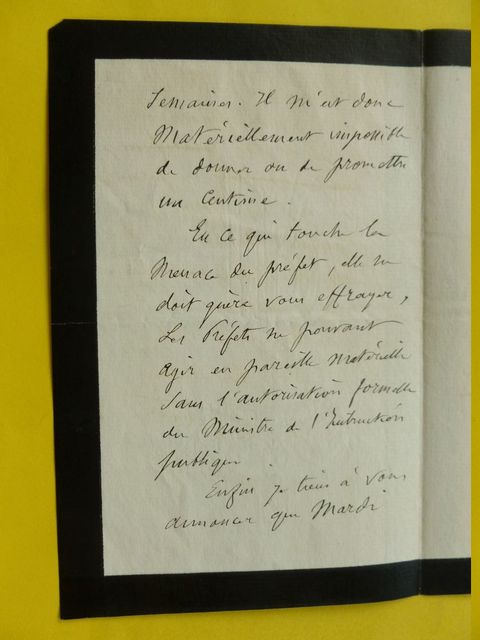 semaines. Il m'est donc
matériellement impossible
de donner ou de promettre
un centime.
En ce qui touche la
menace du préfet, elle ne
doit guère vous effrayer,
les Préfets ne pouvant
agir en pareille matérielle
sans l'autorisation formelle
du Ministre de l'Instruction
publique.
Enfin je tiens à vous
annoncer que Mardi